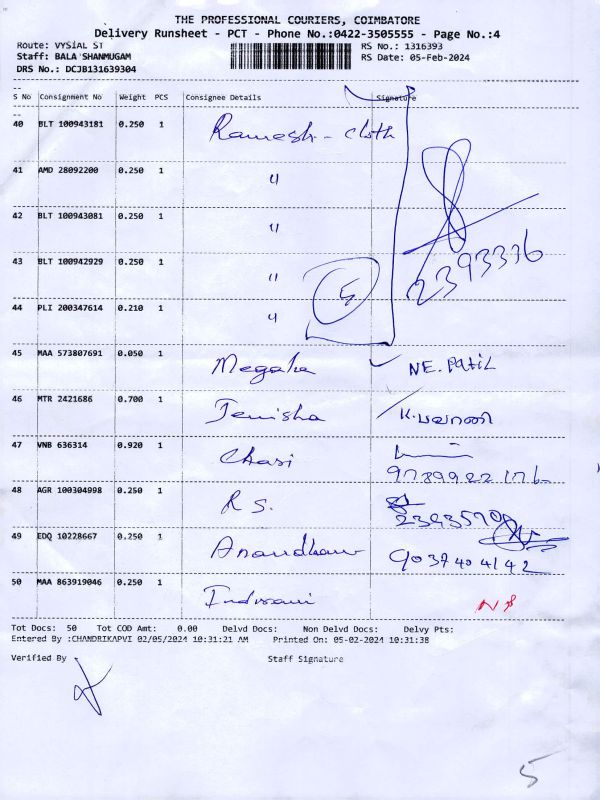 THE PROFESSIONAL COURIERS, COIMBATORE
Delivery Runsheet - PCT - Phone No.:0422-3505555 - Page No.:4
Route: VYSIAL ST
RS No.: 1316393
Staff: BALA SHANMUGAM
RS Date: 05-Feb-2024
DRS No.: DCJB131639304
S No Consignment No Weight PCS Consignee Details Signature
40 BLT 100943181 0.250 1 Ramesh - cloth
41 AMD 28092200 0.250 1 "
42 BLT 100943081 0.250 1 "
43 BLT 100942929 0.250 1 " 5 2393336
44 PLI 200347614 0.210 1 "
45 MAA 573807691 0.050 1 Megaha NE. Patil
46 MTR 2421686 0.700 1 Jenisha K.பவானி
47 VNB 636314 0.920 1 Chasi
9789922176
48 AGR 100304998 0.250 1 R S.
49 EDQ 10228667 0.250 1 Anandhan 9037404142
50 MAA 863919046 0.250 1 Indrani NS
Tot Docs: 50 Tot COD Amt: 0.00 Delvd Docs: Non Delvd Docs: Delvy Pts:
Entered By :CHANDRIKAPVI 02/05/2024 10:31:21 AM Printed On: 05-02-2024 10:31:38
Verified By Staff Signature
5